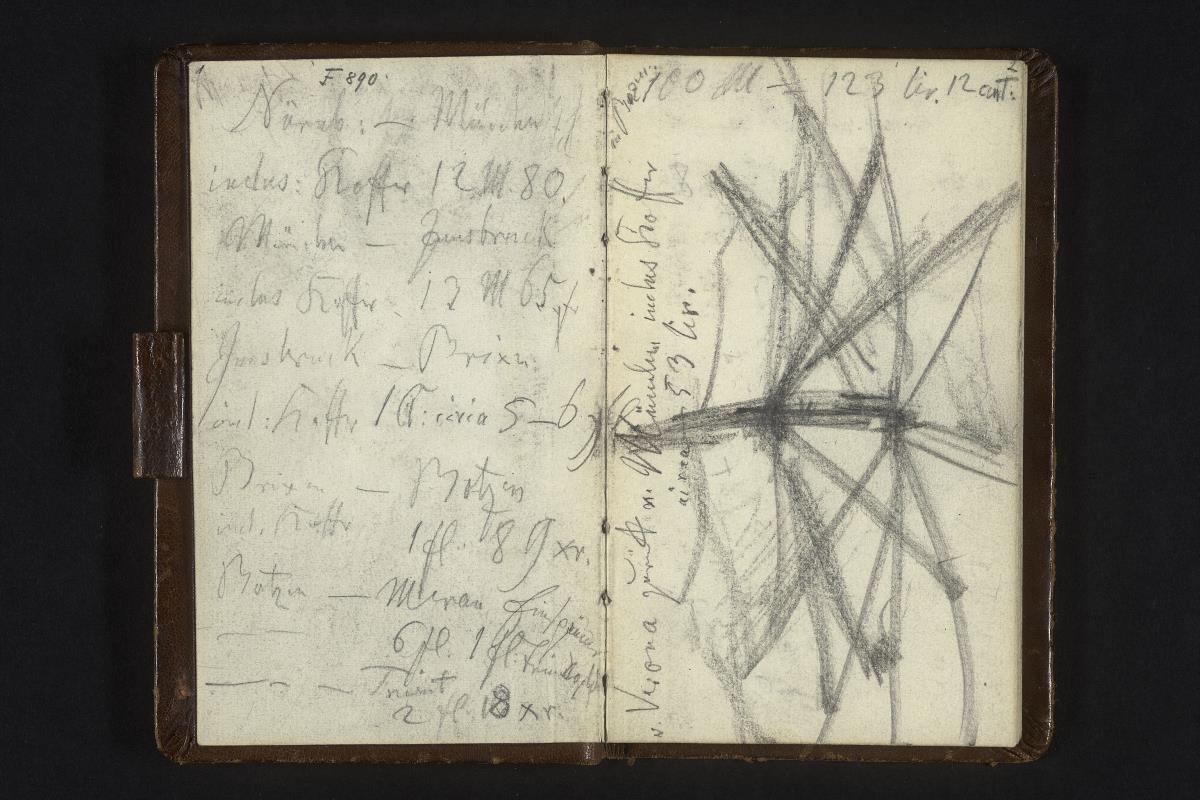 1
F 890
Nürnb: — München
inclus: Koffer 12 M. 80.
München — Innsbruck
inclus Koffer 13 M 65 pf
Innsbruck — Brixen
incl: Koffer circa 5–6
Brixen — Botzen
incl. Koffer
1 fl. 89 xr.
Botzen — Meran Einspänner
6 fl. 1 fl. Trinkgeld
— — Trient
2 fl. 18 xr.
2
100 M — 123 lir. 12 cent:
v. Verona zurück n. München inclus Koffer
circa 53 lir.